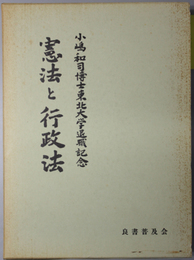 小嶋和司博士東北大学退職記念
憲法と行政法
良書普及会